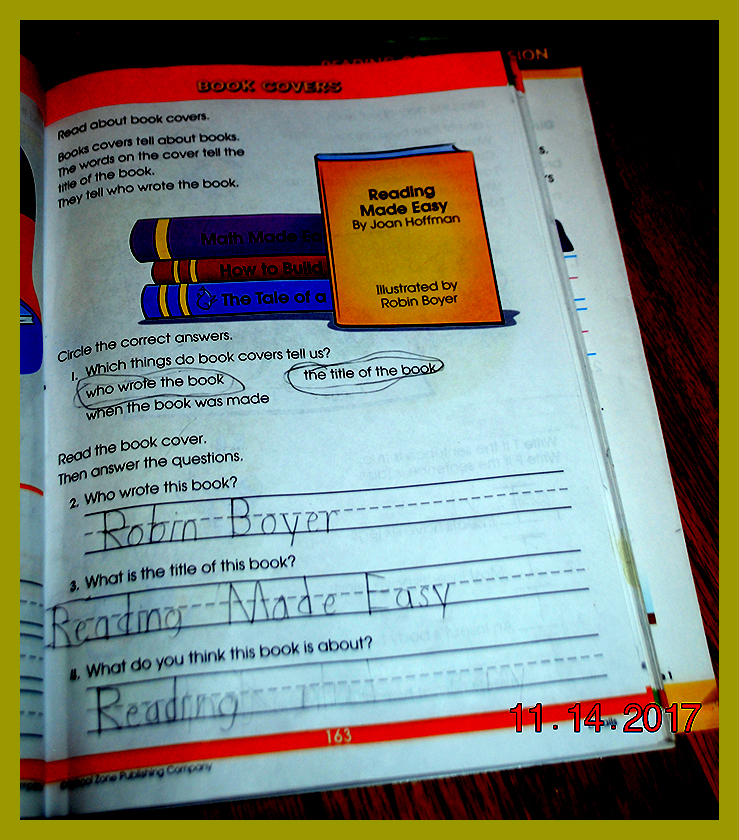 READING CO SION
BOOK COVERS
Read about book covers.
Books covers tell about books.
The words on the cover tell the
title of the book.
They tell who wrote the book.
Reading
Made Easy
By Joan Hoffman
Illustrated by
Robin Boyer
Math Made Ea
How to Build
The Tale of a
Circle the correct answers.
1. Which things do book covers tell us?
who wrote the book the title of the book
when the book was made
Read the book cover.
Then answer the questions.
2. Who wrote this book?
Robin Boyer
3. What is the title of this book?
Reading Made Easy
4. What do you think this book is about?
Reading
11.14.2017
163
School Zone Publishing Company